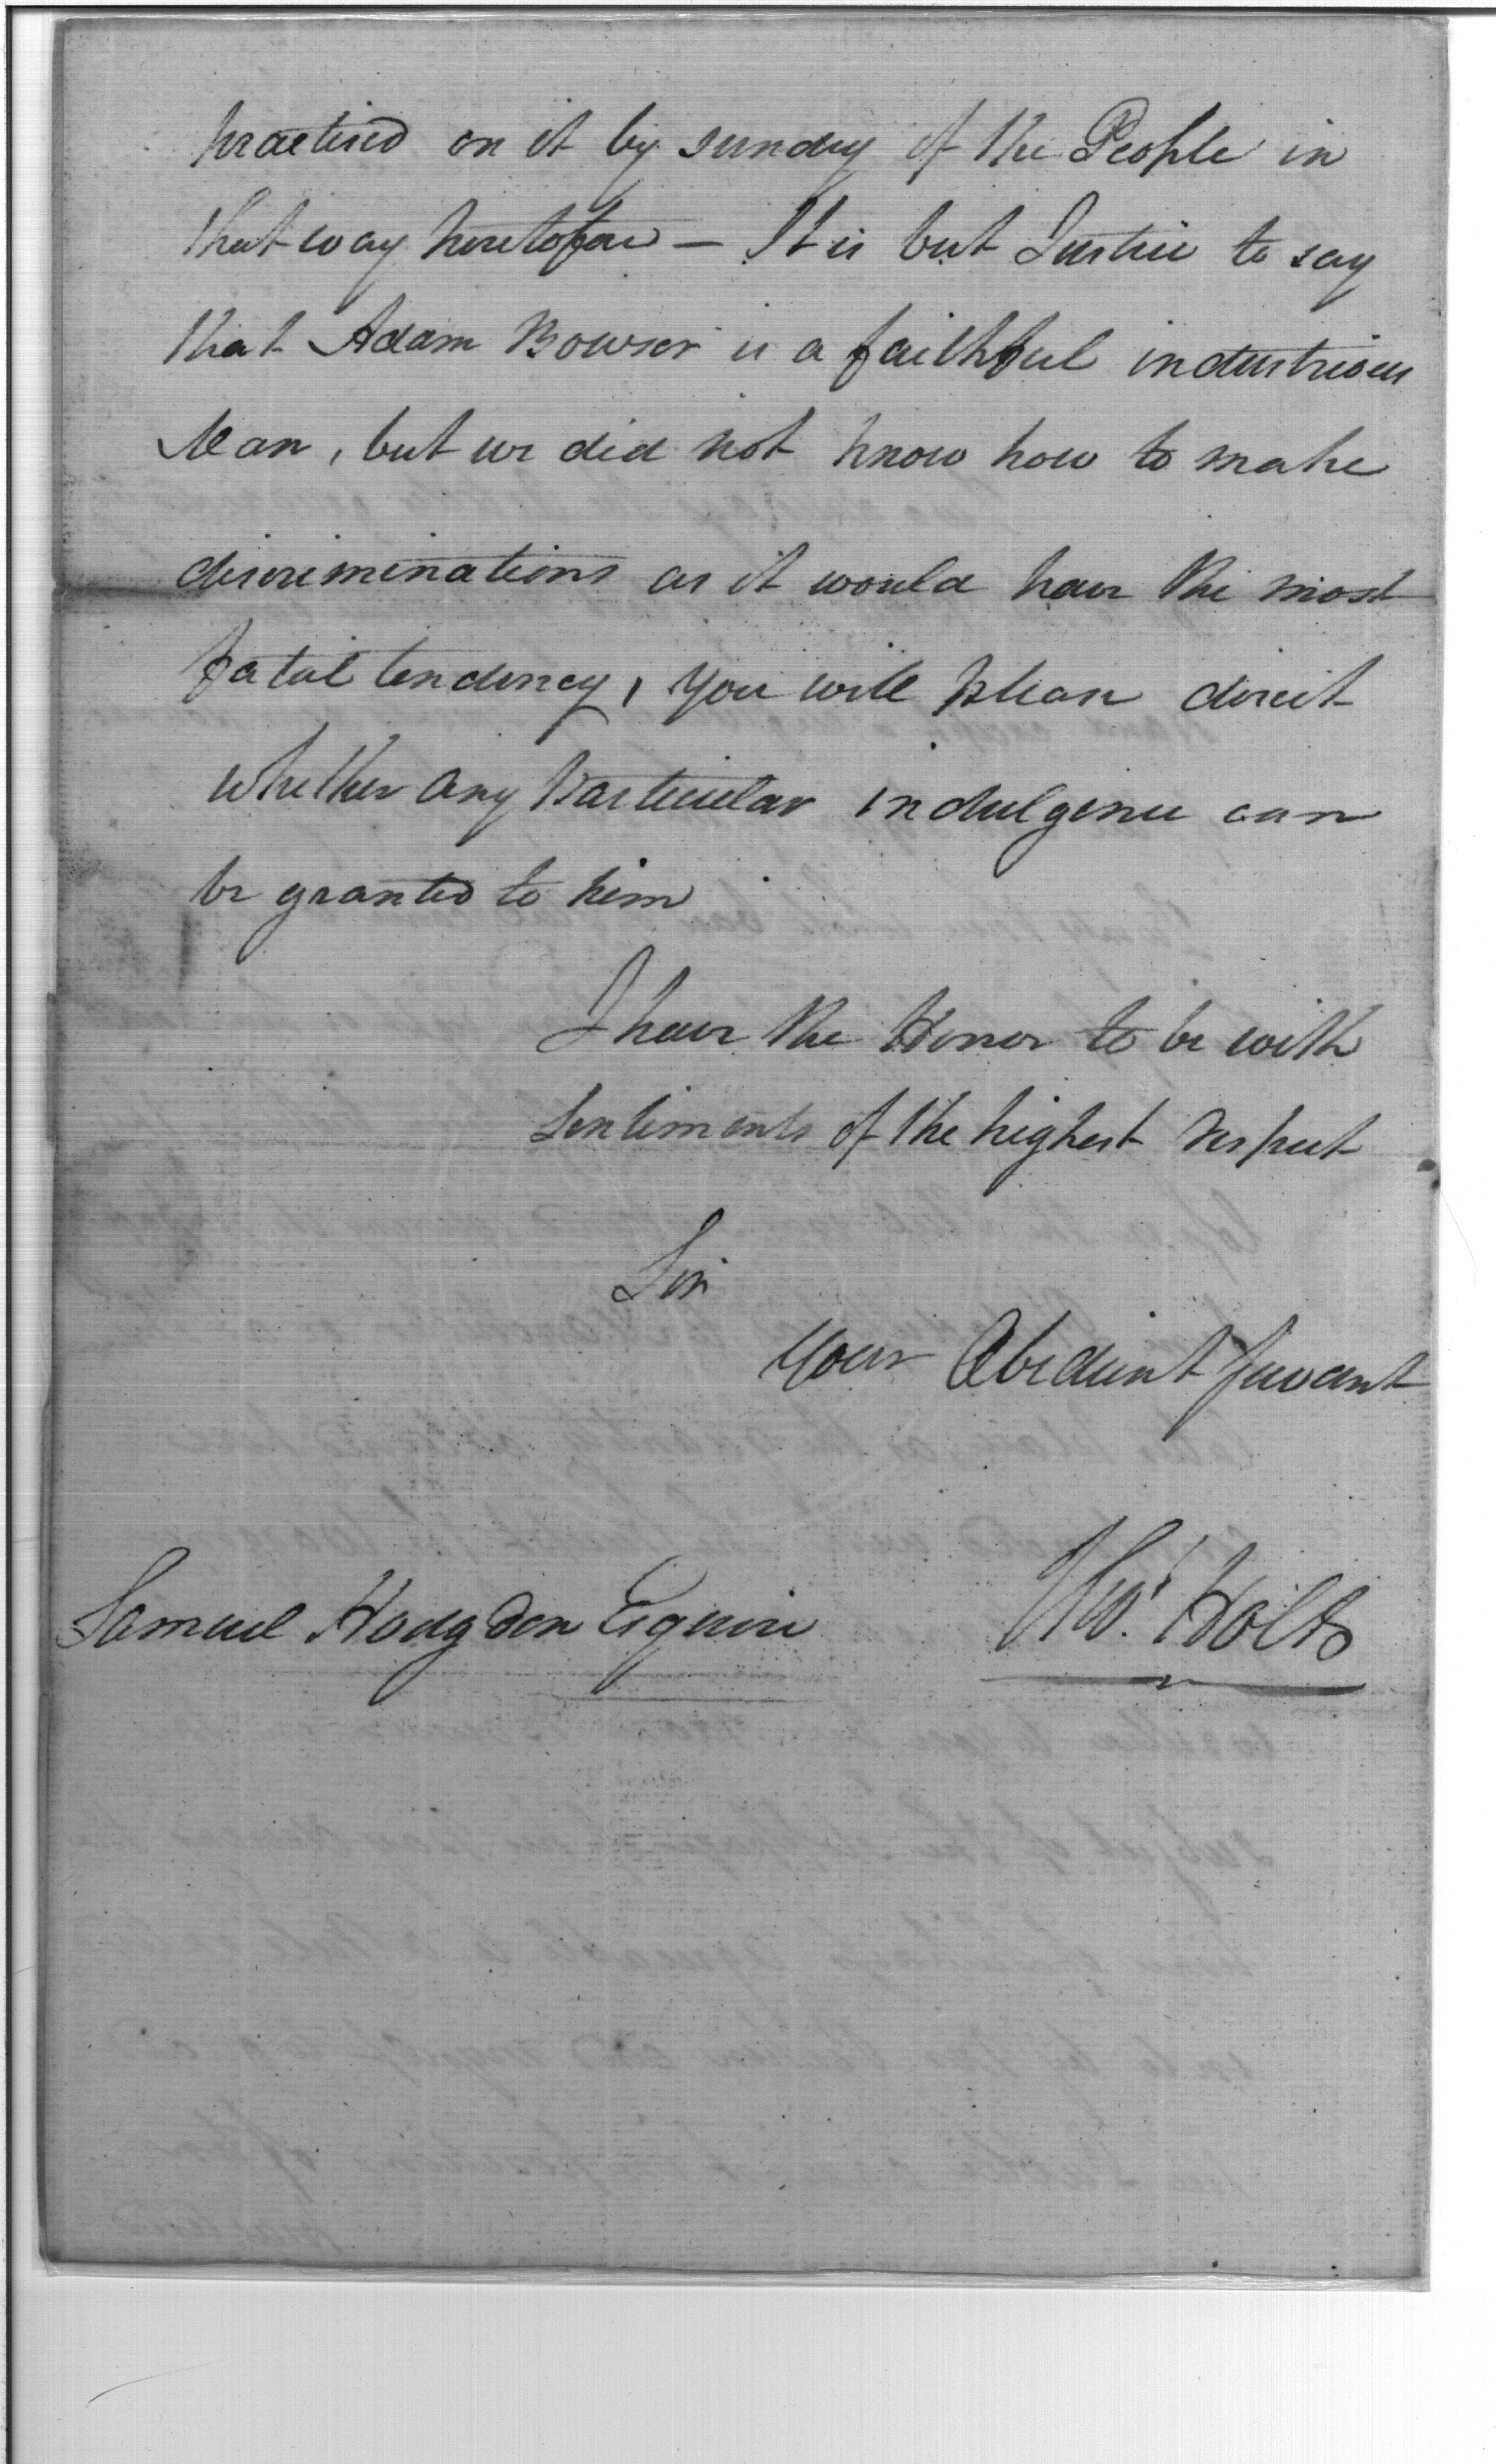 practised on it by sundry of the People in
that way heretofore — It is but Justice to say
that Adam Bowser is a faithful industrious
Man, but we did not know how to make
discriminations as it would have the most
fatal tendency, you will please direct
whether any particular indulgence can
be granted to him
I have the Honor to be with
sentiments of the highest respect
Sir
Your Obedient Servant
Samuel Hodgdon Esquire
Tho.s Holt